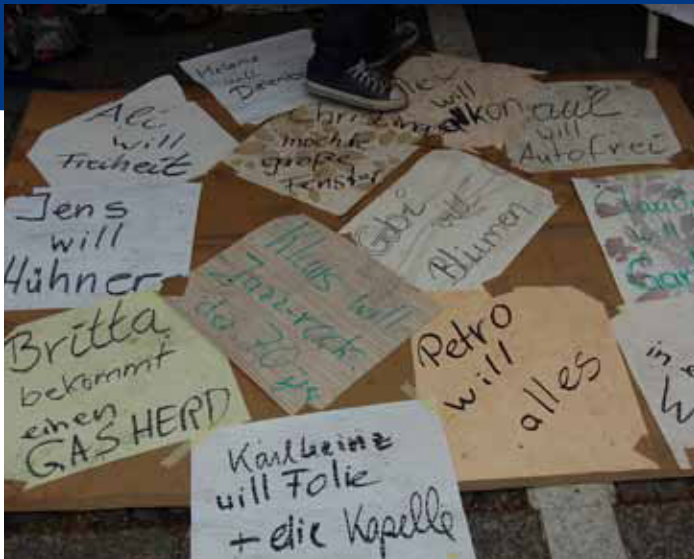 Melanie
will
Ali
will
Freiheit
Christina
möchte
große
Fenster
will
will
Autofrei
Jens
will
Hühner
Gabi
will
Blumen
will
Klaus will
Jazzrock
der 70iger
Britta
bekommt
einen
GASHERD
Petro
will
alles
Karlheinz
will Folie
+ die Kapelle